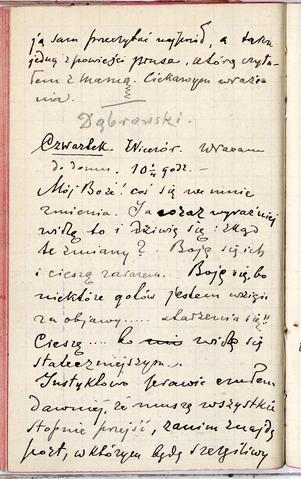 ją sam przeczytać najpierw, a także
jedną z powieści Prusa, którą czyta-
łem z Mamą. Ciekawym wraże-
nia.
Dąbrowski.
Czwartek. Wieczór. Wracam
do domu. 10 ¼ godz. –
Mój Boże! coś się we mnie
zmienia. Ja coraz wyraźniej
widzę to i dziwię się: skąd
te zmiany? Boję się ich
i cieszę zarazem. Boję się, bo
niektóre gotów jestem wziąć
za objawy..... starzenia się!!
Cieszę.... bo widzę się
stateczniejszym.
Instyktowo prawie czułem
dawniej, że muszę wszystkie
stopnie przejść, zanim znajdę
port, w którym będę szczęśliwy